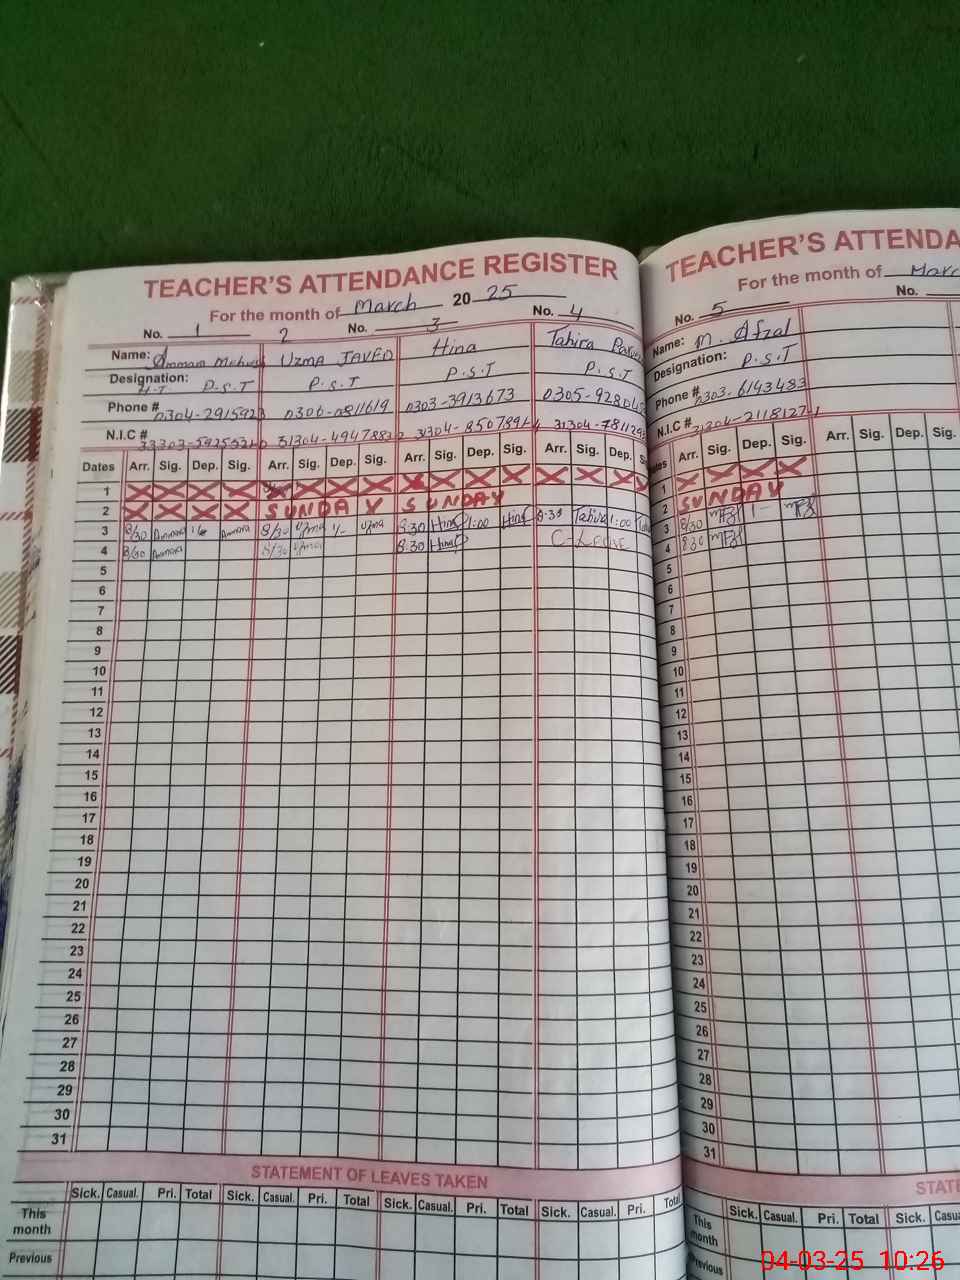 TEACHER'S ATTENDANCE REGISTER
For the month of March 2025
No. 1 2 No. 3 No. 4
Name: UZMA JAVED Hina Tahira
Designation: H.T. P.S.T P.S.T P.S.T P.S.T
Phone # 0304-2915923 0306-0811619 0303-3913673 0305-92804
N.I.C #
Dates Arr. Sig. Dep. Sig. Arr. Sig. Dep. Sig. Arr. Sig. Dep. Sig. Arr. Sig. Dep. Si
1
2 SUNDAY SUNDAY
3 8/30 8/30 Uzma 1/- Uzma 8:30 Hina 1:00 Hina 8:30 Tahira 1:00
4 8/30 8/30 Uzma 8:30 Hina C-Leave
5
6
7
8
9
10
11
12
13
14
15
16
17
18
19
20
21
22
23
24
25
26
27
28
29
30
31
STATEMENT OF LEAVES TAKEN
Sick. Casual. Pri. Total Sick. Casual. Pri. Total Sick. Casual. Pri. Total Sick. Casual. Pri. Total
This month
Previous
TEACHER'S ATTENDA
For the month of Marc
No. 5 No.
Name: M. Afzal
Designation: P.S.T
Phone # 0303-6193483
N.I.C # 31304-2118127-1
ates Arr. Sig. Dep. Sig. Arr. Sig. Dep. Sig.
1
2 SUNDAY
3 8/30 1-
4 830
5
6
7
8
9
10
11
12
13
14
15
16
17
18
19
20
21
22
23
24
25
26
27
28
29
30
31
STATE
Sick. Casual. Pri. Total Sick. Casua
This month
Previous
04-03-25 10:26